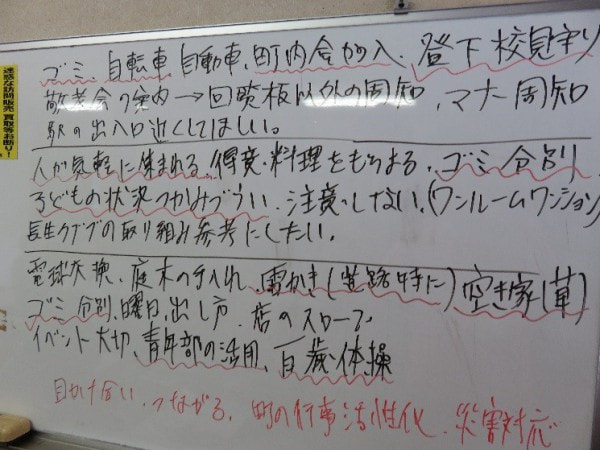 迷惑な訪問販売
買取等お断り！
ゴミ、自転車、自動車、町内会加入、登下校見守り
敬老会の案内→回覧板以外の周知、マナー周知
駅の出入口近くしてほしい。
人が気軽に集まれる、得意・料理をもちよる、ゴミ分別
子どもの状況つかみづらい、注意しない、(ワンルームワンション)
長生クラブの取り組み参考にしたい。
電球交換、庭木の手入れ、雪かき(道路特に) 空き家(草)
ゴミ分別、曜日、出し方、店のスロープ
イベント大切、青年部の活用、百歳体操
目かけ合い、つながる、町の行事活性化、災害対応